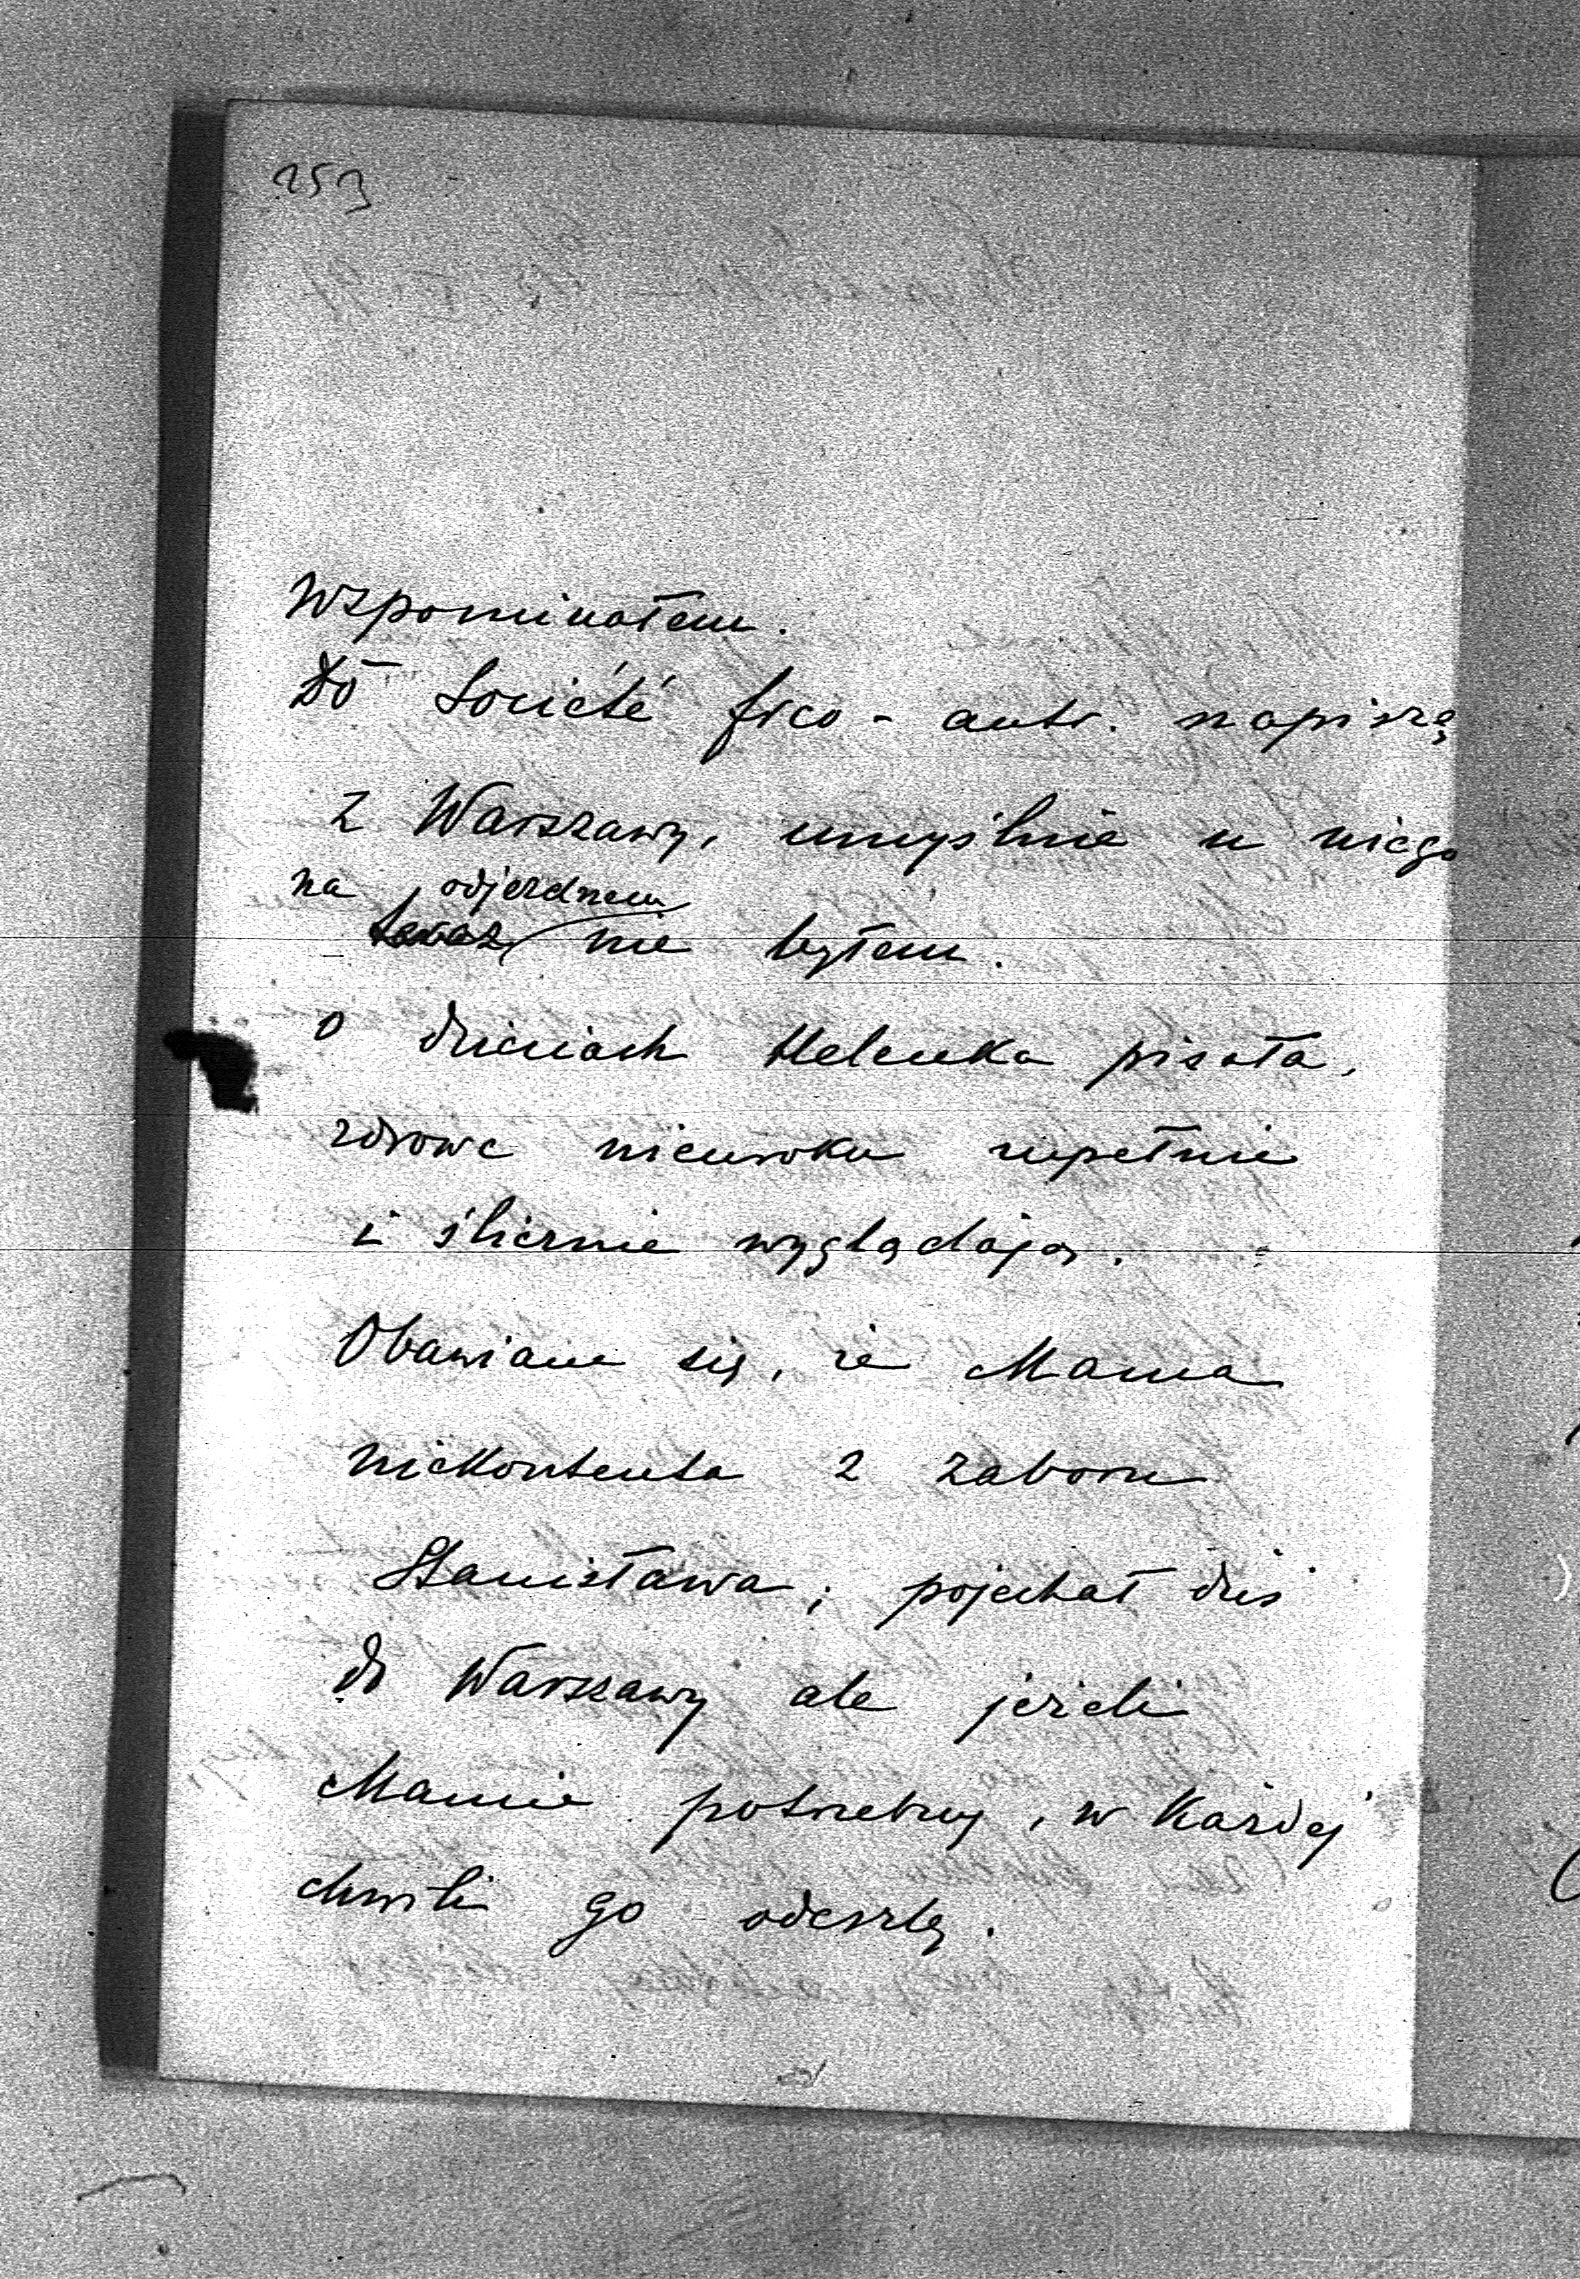 253
wspominałem.
Do Société frco - autr. napiszę
z Warszawy, umyślnie u niego
na odjezdnem
teraz nie byłem.
o dzieciach Helenka pisała,
zdrowe nieuroku zupełnie
i ślicznie wyglądają.
Obawiam się, że Mama
niekontenta z zaboru
Stanisława; pojechał dziś
do Warszawy ale jeżeli
Mamie potrzebny, w każdej
chwili go odeszlę.